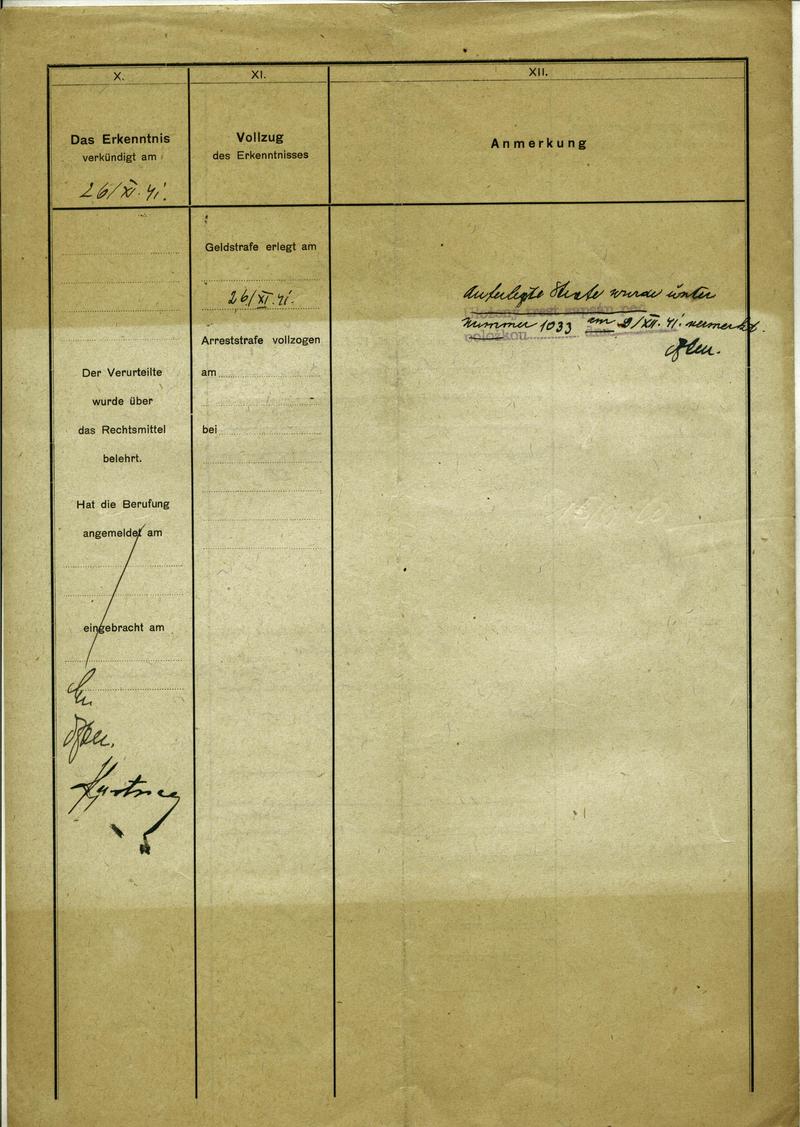 X.
Das Erkenntnis
verkündigt am
26/XI. 41.
Der Verurteilte
wurde über
das Rechtsmittel
belehrt.
Hat die Berufung
angemeldet am
eingebracht am
XI.
Vollzug
des Erkenntnisses
Geldstrafe erlegt am
26/XI. 41.
Arreststrafe vollzogen
am
bei
XII.
Anmerkung
Auferlegte Strafe wurde unter
Nummer 1033 am 9/XII. 41. vermerkt.